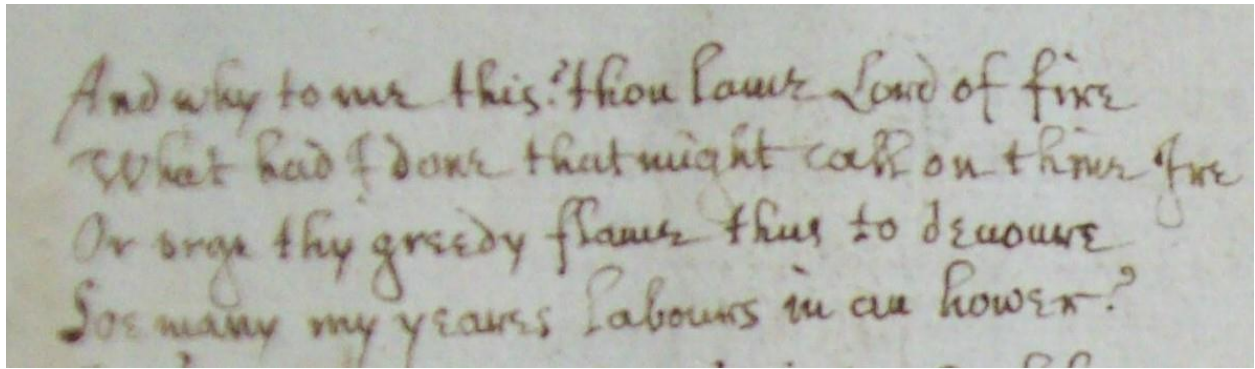 And why to me this? thou lame Lord of fire
What had I done that might call on thine Ire
Or vrge thy greedy flame thus to deuoure
Soe many my yeares labours in an hower?